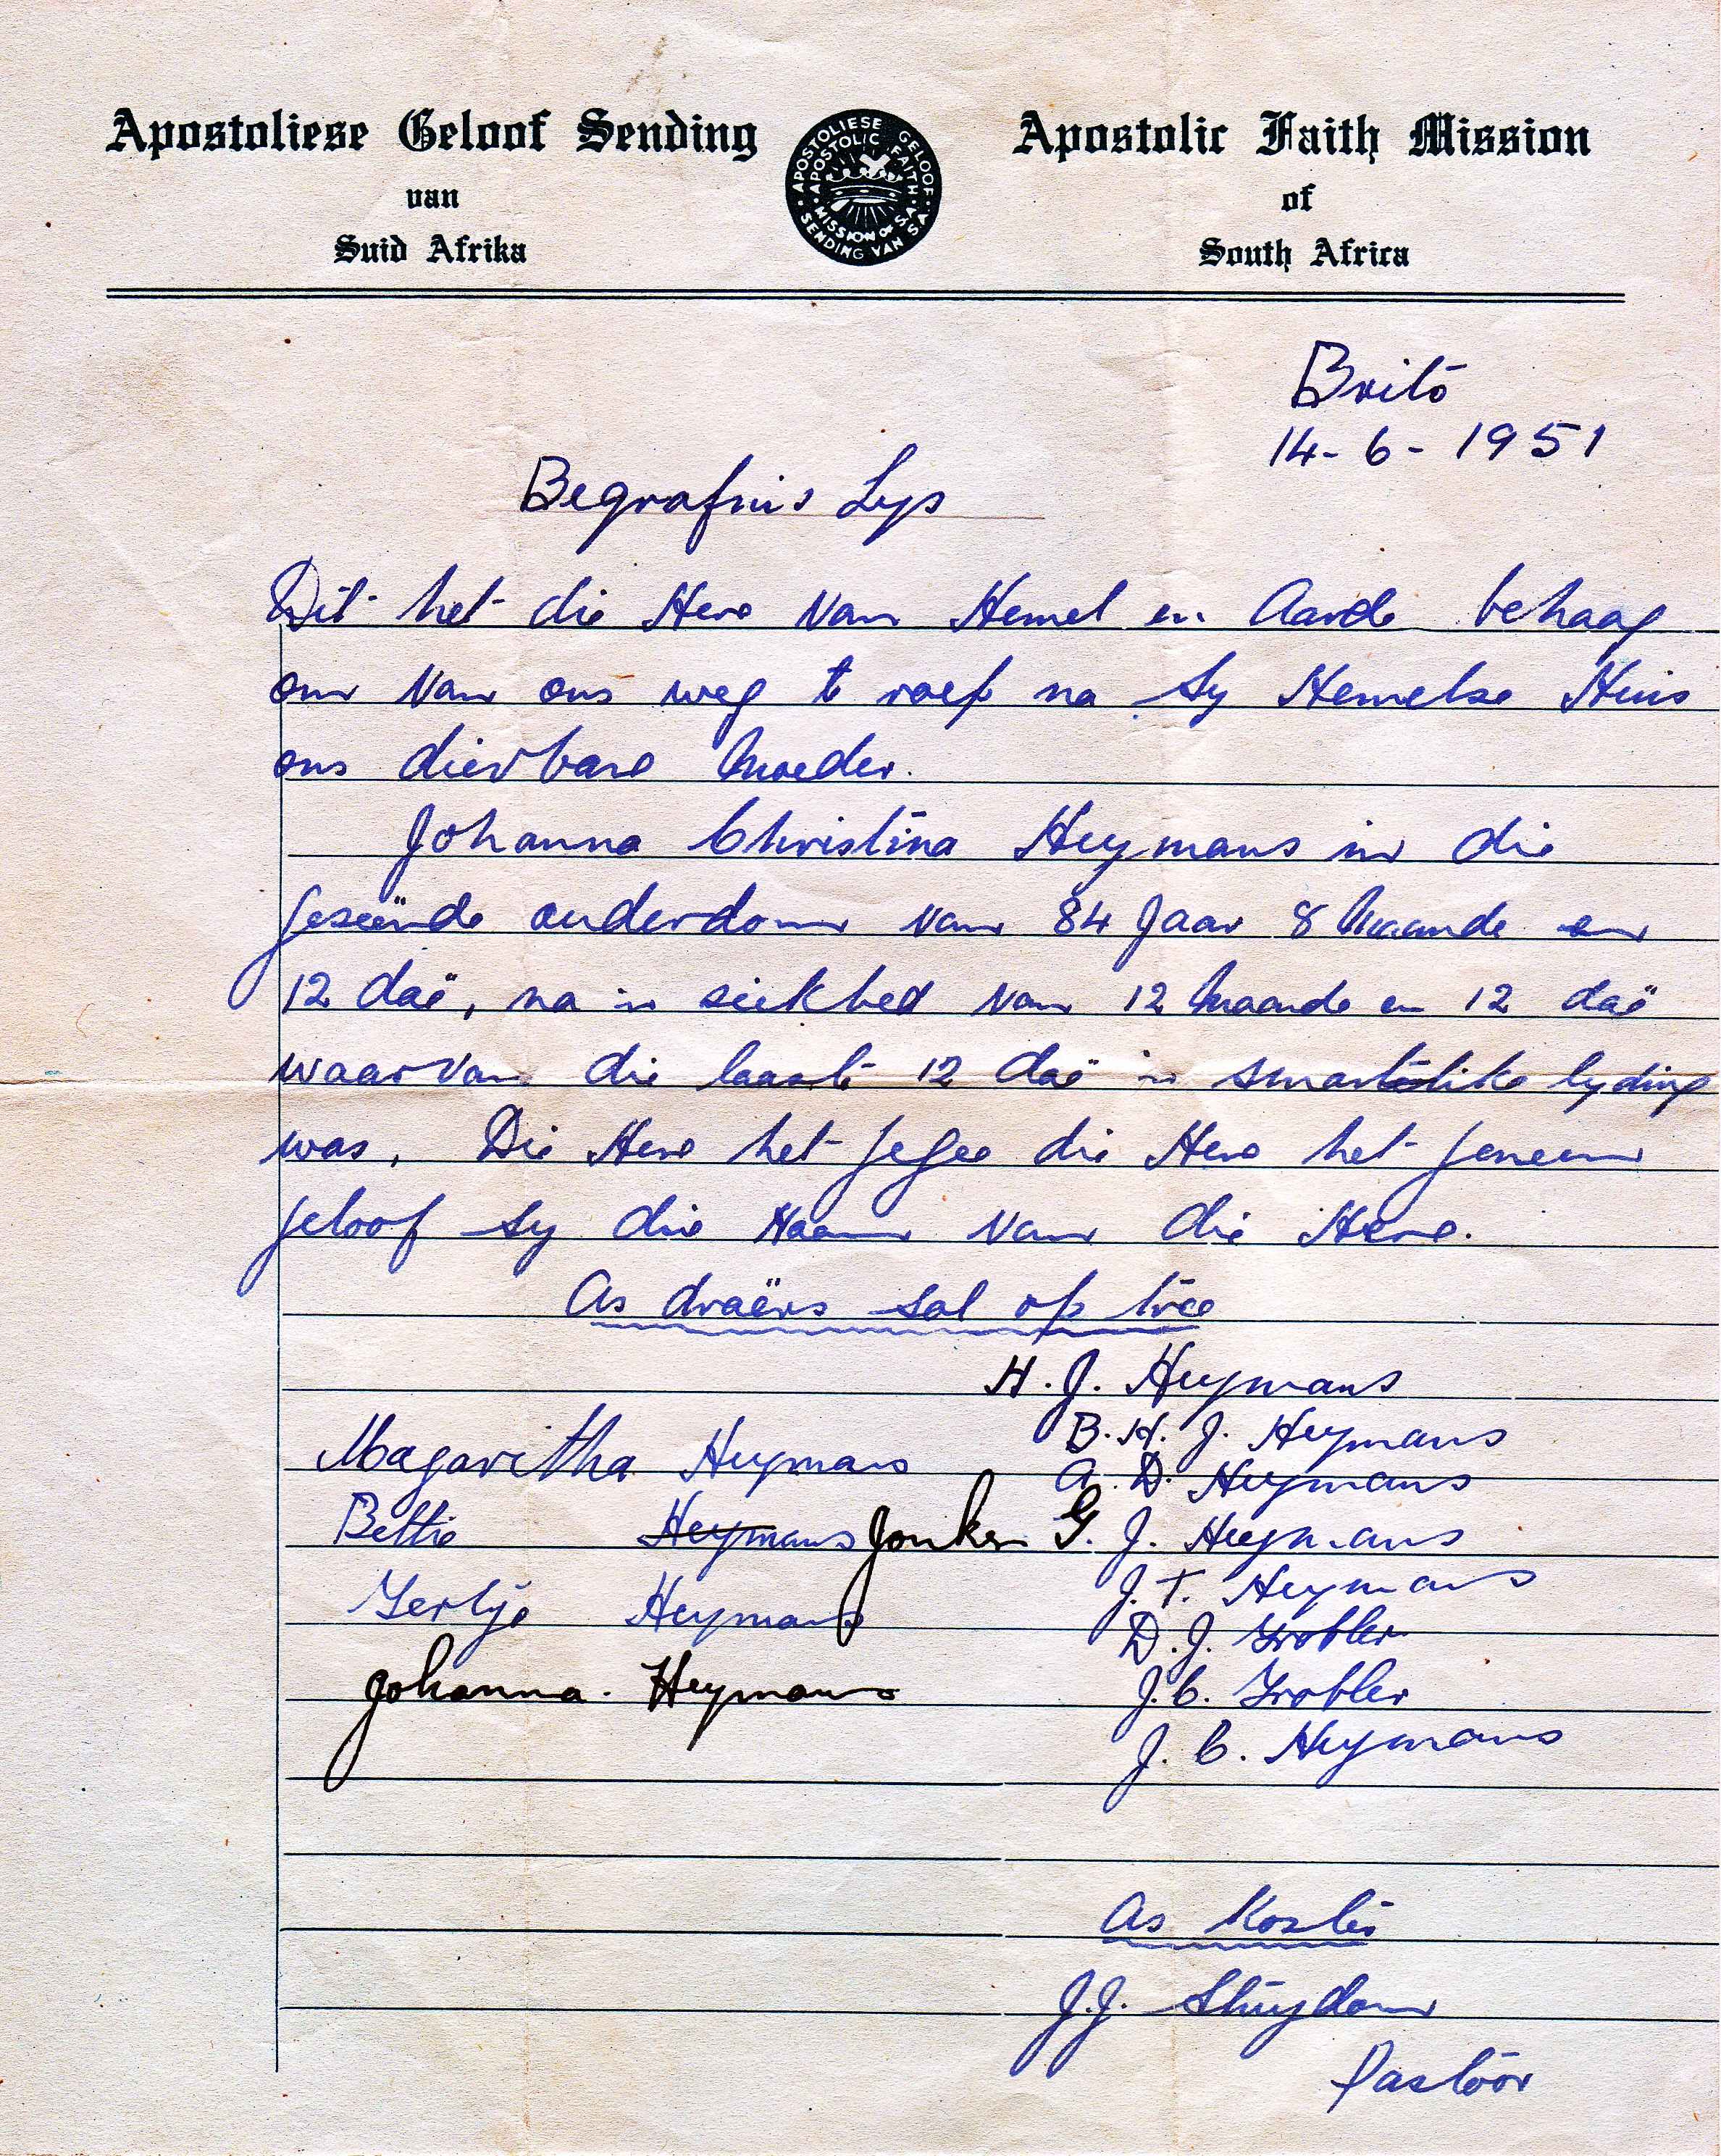 Apostoliese Geloof Sending
van
Suid Afrika
APOSTOLIESE GELOOF SENDING VAN S.A.
APOSTOLIC FAITH MISSION OF S.A.
Apostolic Faith Mission
of
South Africa
Brits
14-6-1951
Begrafnis Lys
Dit het die Here van Hemel en Aarde behaag
om van ons weg te roep na Sy Hemelse Huis
ons dierbare Moeder.
Johanna Christina Heymans in die
geseënde ouderdom van 84 Jaar 8 Maande en
12 daë, na 'n siekbed van 12 Maande en 12 daë
waarvan die laaste 12 daë 'n smartlike lyding
was. Die Here het gegee die Here het geneem
geloof sy die Naam van die Here.
As draërs sal op tree
H. J. Heymans
B. H. J. Heymans
Magaritha Heymans
A. D. Heymans
Bettie Heymans Jonker
G. J. Heymans
Gertjie Heymans
J. T. Heymans
D. J. Grobler
Johanna. Heymans
J. C. Grobler
J. C. Heymans
As Koster
J. J. Struydom
Pastoor